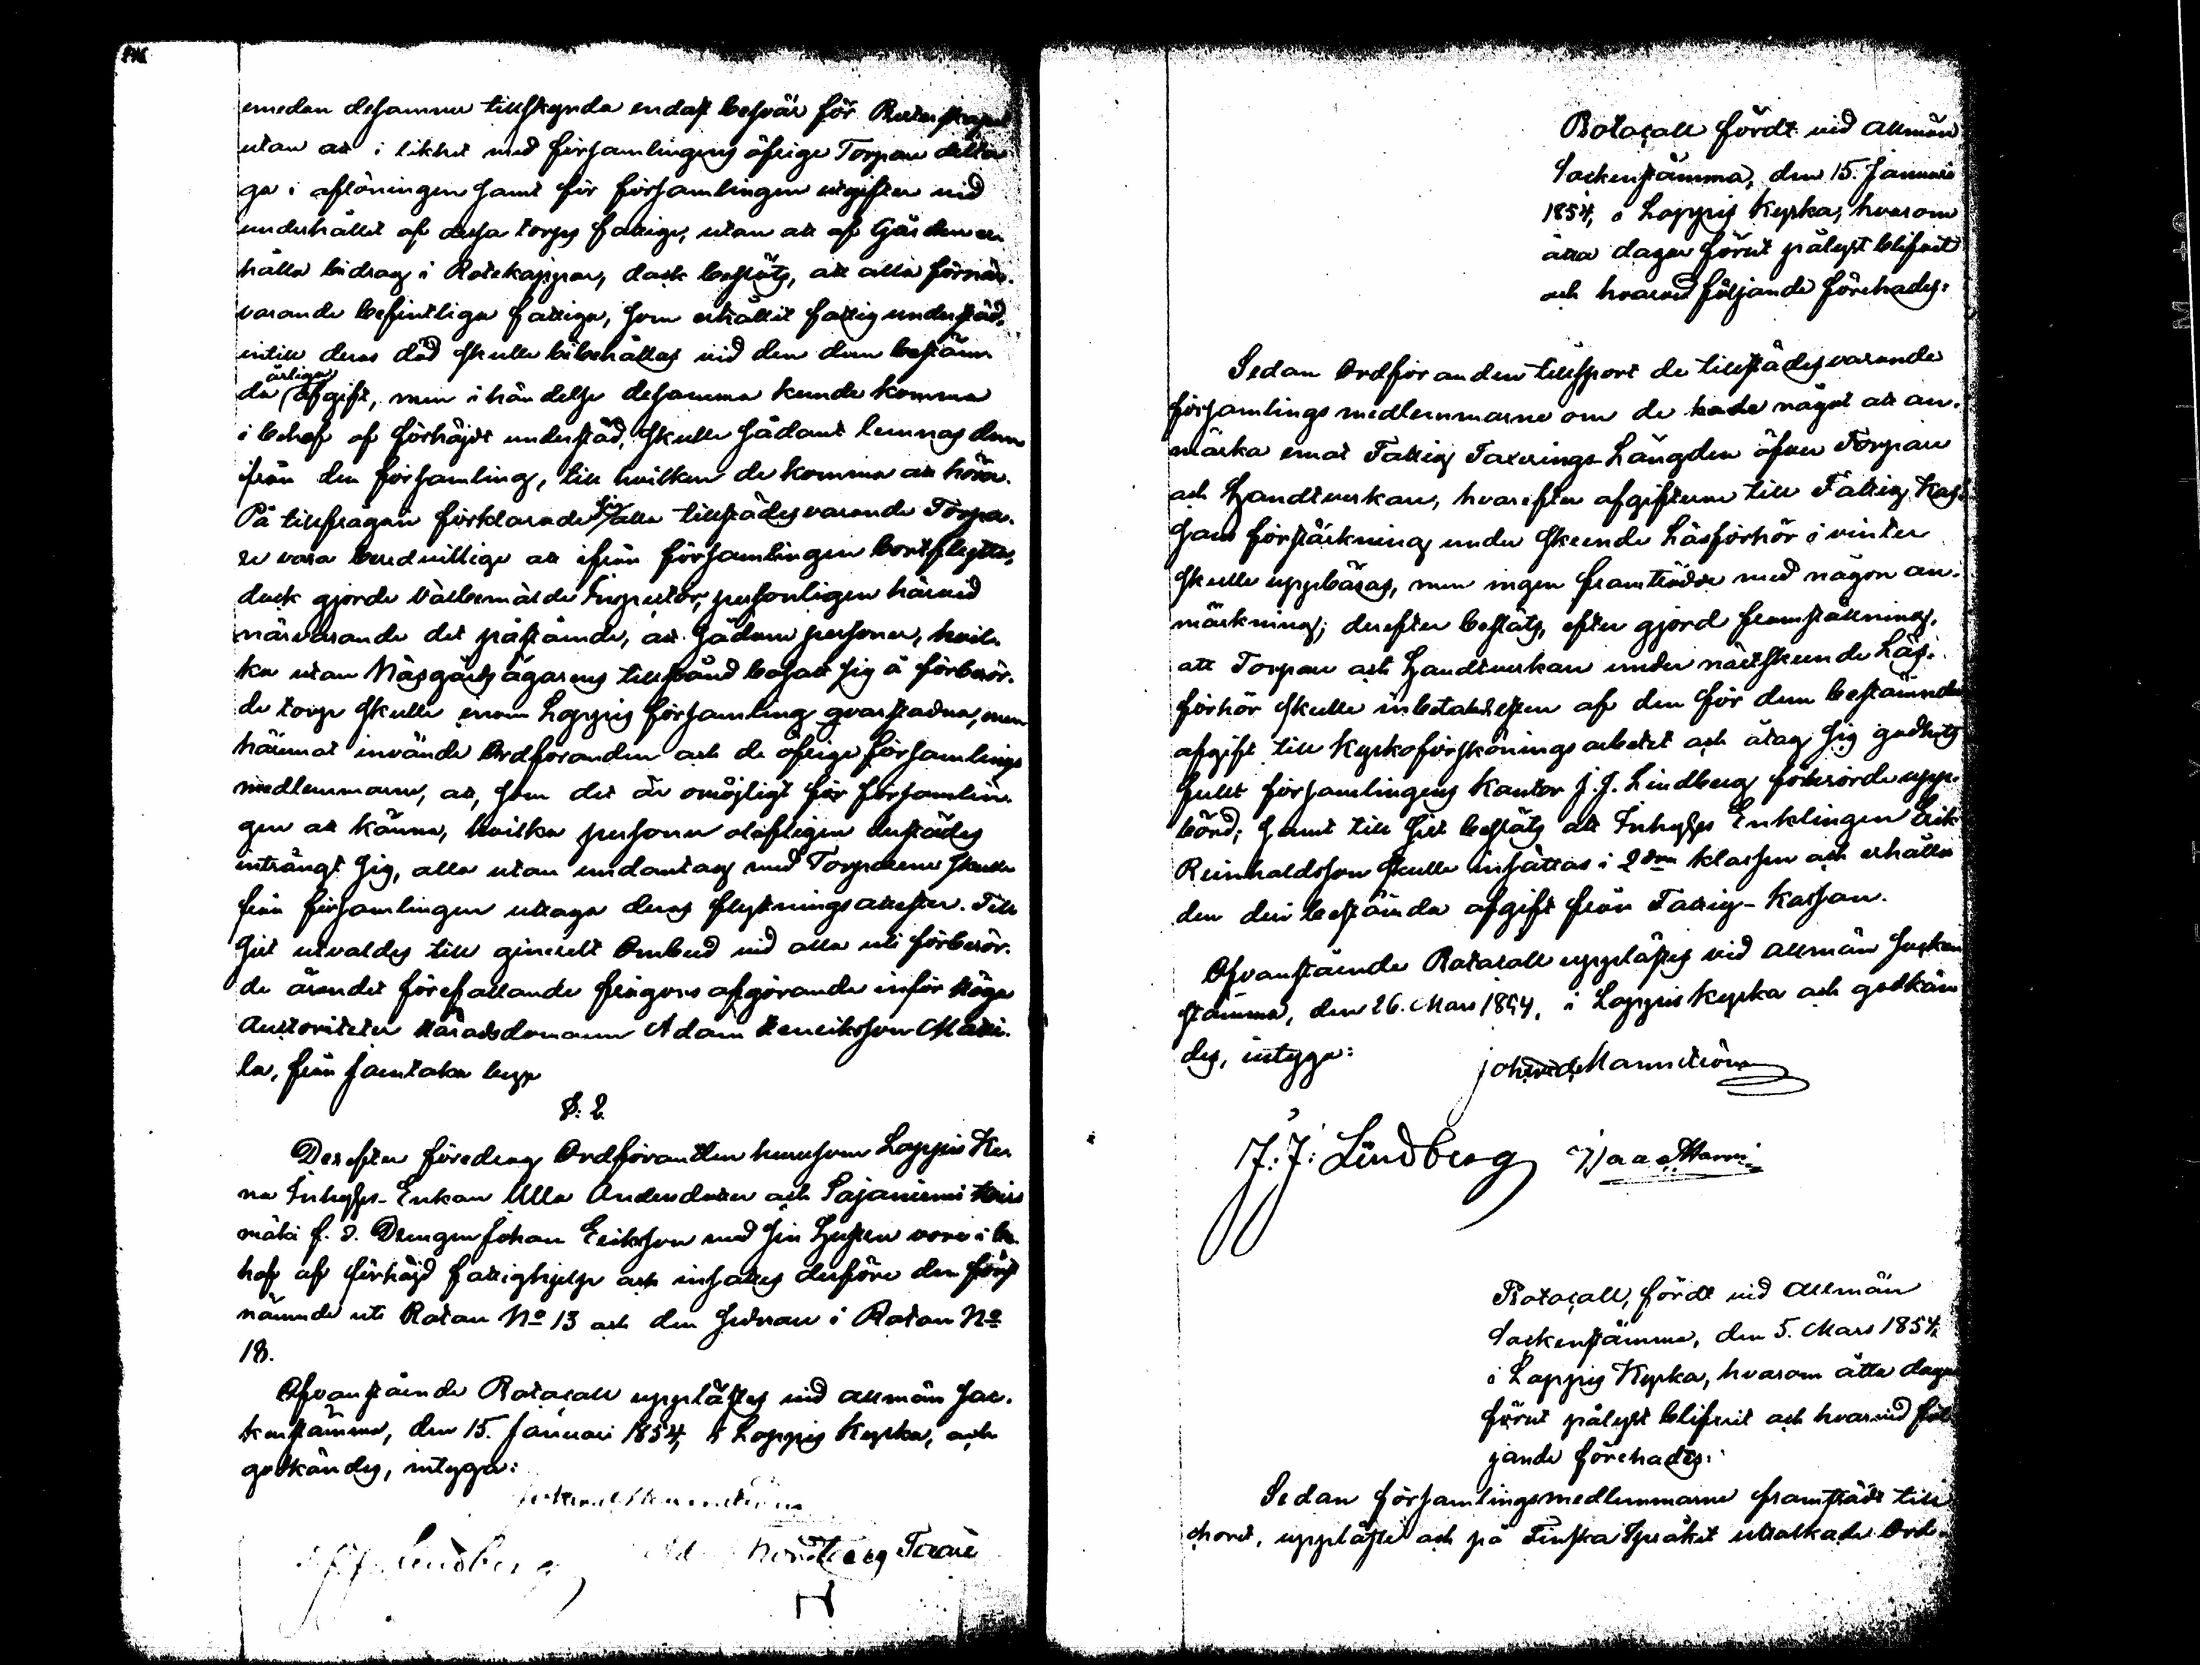 emedan desamma tillskynda endast besvär för Rotarskapet
utan att i likhet med församlingens öfrige Torpare delta-
ga i aflöningen samt för församlingen utgiften vid
underhållet af dessa torps fattige, utan att af Gården er-
hålla bidrag i Rotekappar, dock beslöts, att alla förnär-
varande befintliga fattiga, som erhållit fattig understöd,
intill deras död skulle bibehållas vid den dem bestäm-
da årliga afgift, men i händelse desamma kunde komma
i behof af förhöjdt understöd, skulle sådant lemnas dem
ifrån den församling, till hvilken de komma att höra.
På tillfrågan förklarade sig alla tillstädesvarande Torpa-
re vara beredvillige att ifrån församlingen bortflytta,
dock gjorde Välbemälde Inspector, personligen härvid
närvarande det påstående, att sådane personer, hvil-
ka utan Näsgårds ägarens tillstånd bosatt sig å förberör-
de torp skulle inom Loppis församling qvarstadna, men
häremot invände Ordföranden och de öfrige församlings
medlemmarne, att, som det är omöjligt för församlin-
gen att känna, hvilka personer olofligen derstädes
inträngt sig, alla utan undantag med Torparne skulle
från församlingen uttaga deras flyttningsattester. Till
sist utvaldes till generelt Ombud vid alla uti förberör-
de ärendet förefallande frågors afgörande inför Höga
Auctoriteter Häradsdomaren Adam Henriksson Matti-
la, från Jaentaka by
§. 2.
Derefter föredrog Ordföranden hurusom Loppis Ker
na Inhyses-Enkan Ulla Andersdotter och Sajaniemi
mäki f. d. Drengen Johan Eriksson med sin Hustru voro i be-
hof af förhöjd fattighjelp och insattes derföre den först
nämnde uti Rotan No 13 och den sednare i Rotan No
18.
Ofvanstående Protocoll upplästes vid allmän Soc-
kenstämma, den 15. Januari 1854, i Loppis Kyrka, och
godkändes, intyga:
J. J. Lindberg Nordberg
Protocoll fördt vid allmän
Sockenstämma, den 15. Januari
1854, i Loppis Kyrka, hvarom
åtta dagar förut pålyst blifvit
och hvarvid följande förehades:
Sedan Ordföranden tillsport de tillstädesvarande
församlings medlemmarne om de hade något att an-
märka emot Fattig Taxerings-Längden öfver Torpare
och Handtverkare, hvarefter afgifterne till Fattig Kas-
sans förstärkning under skeende Läsförhör i vinter
skulle uppbäras, men ingen framträdde med någon an-
märkning; derefter beslöts, efter gjord framställning,
att Torpare och Handtverkare under näst skeende Läs-
förhör skulle inbetala resten af den för dem bestämda
afgift till Kyrkoförskönings arbetet och åtog sig godhets
fullt församlingens Kantor J. J. Lindberg förberörde upp-
börd; samt till sist beslöts att Inhyses Enklingen Erik
Reinholdsson skulle insättas i 2dra Klassen och erhålla
den deri bestämda afgift från Fattig-Kassan.
Ofvanstående Protocoll upplästes vid allmän Socken
stämma, den 26. Mars 1854, i Loppis Kyrka och godkän-
des, intyga:
J. J: Lindberg
Protocoll, fördt vid Allmän
Sockenstämma, den 5. Mars 1854,
i Loppis Kyrka, hvarom åtta dagar
förut pålyst blifvit och hvarvid föl-
jande förehades:
Sedan församlingsmedlemmarne framträdt till
choret, upplästes och på Finska Språket uttolkade Ord-